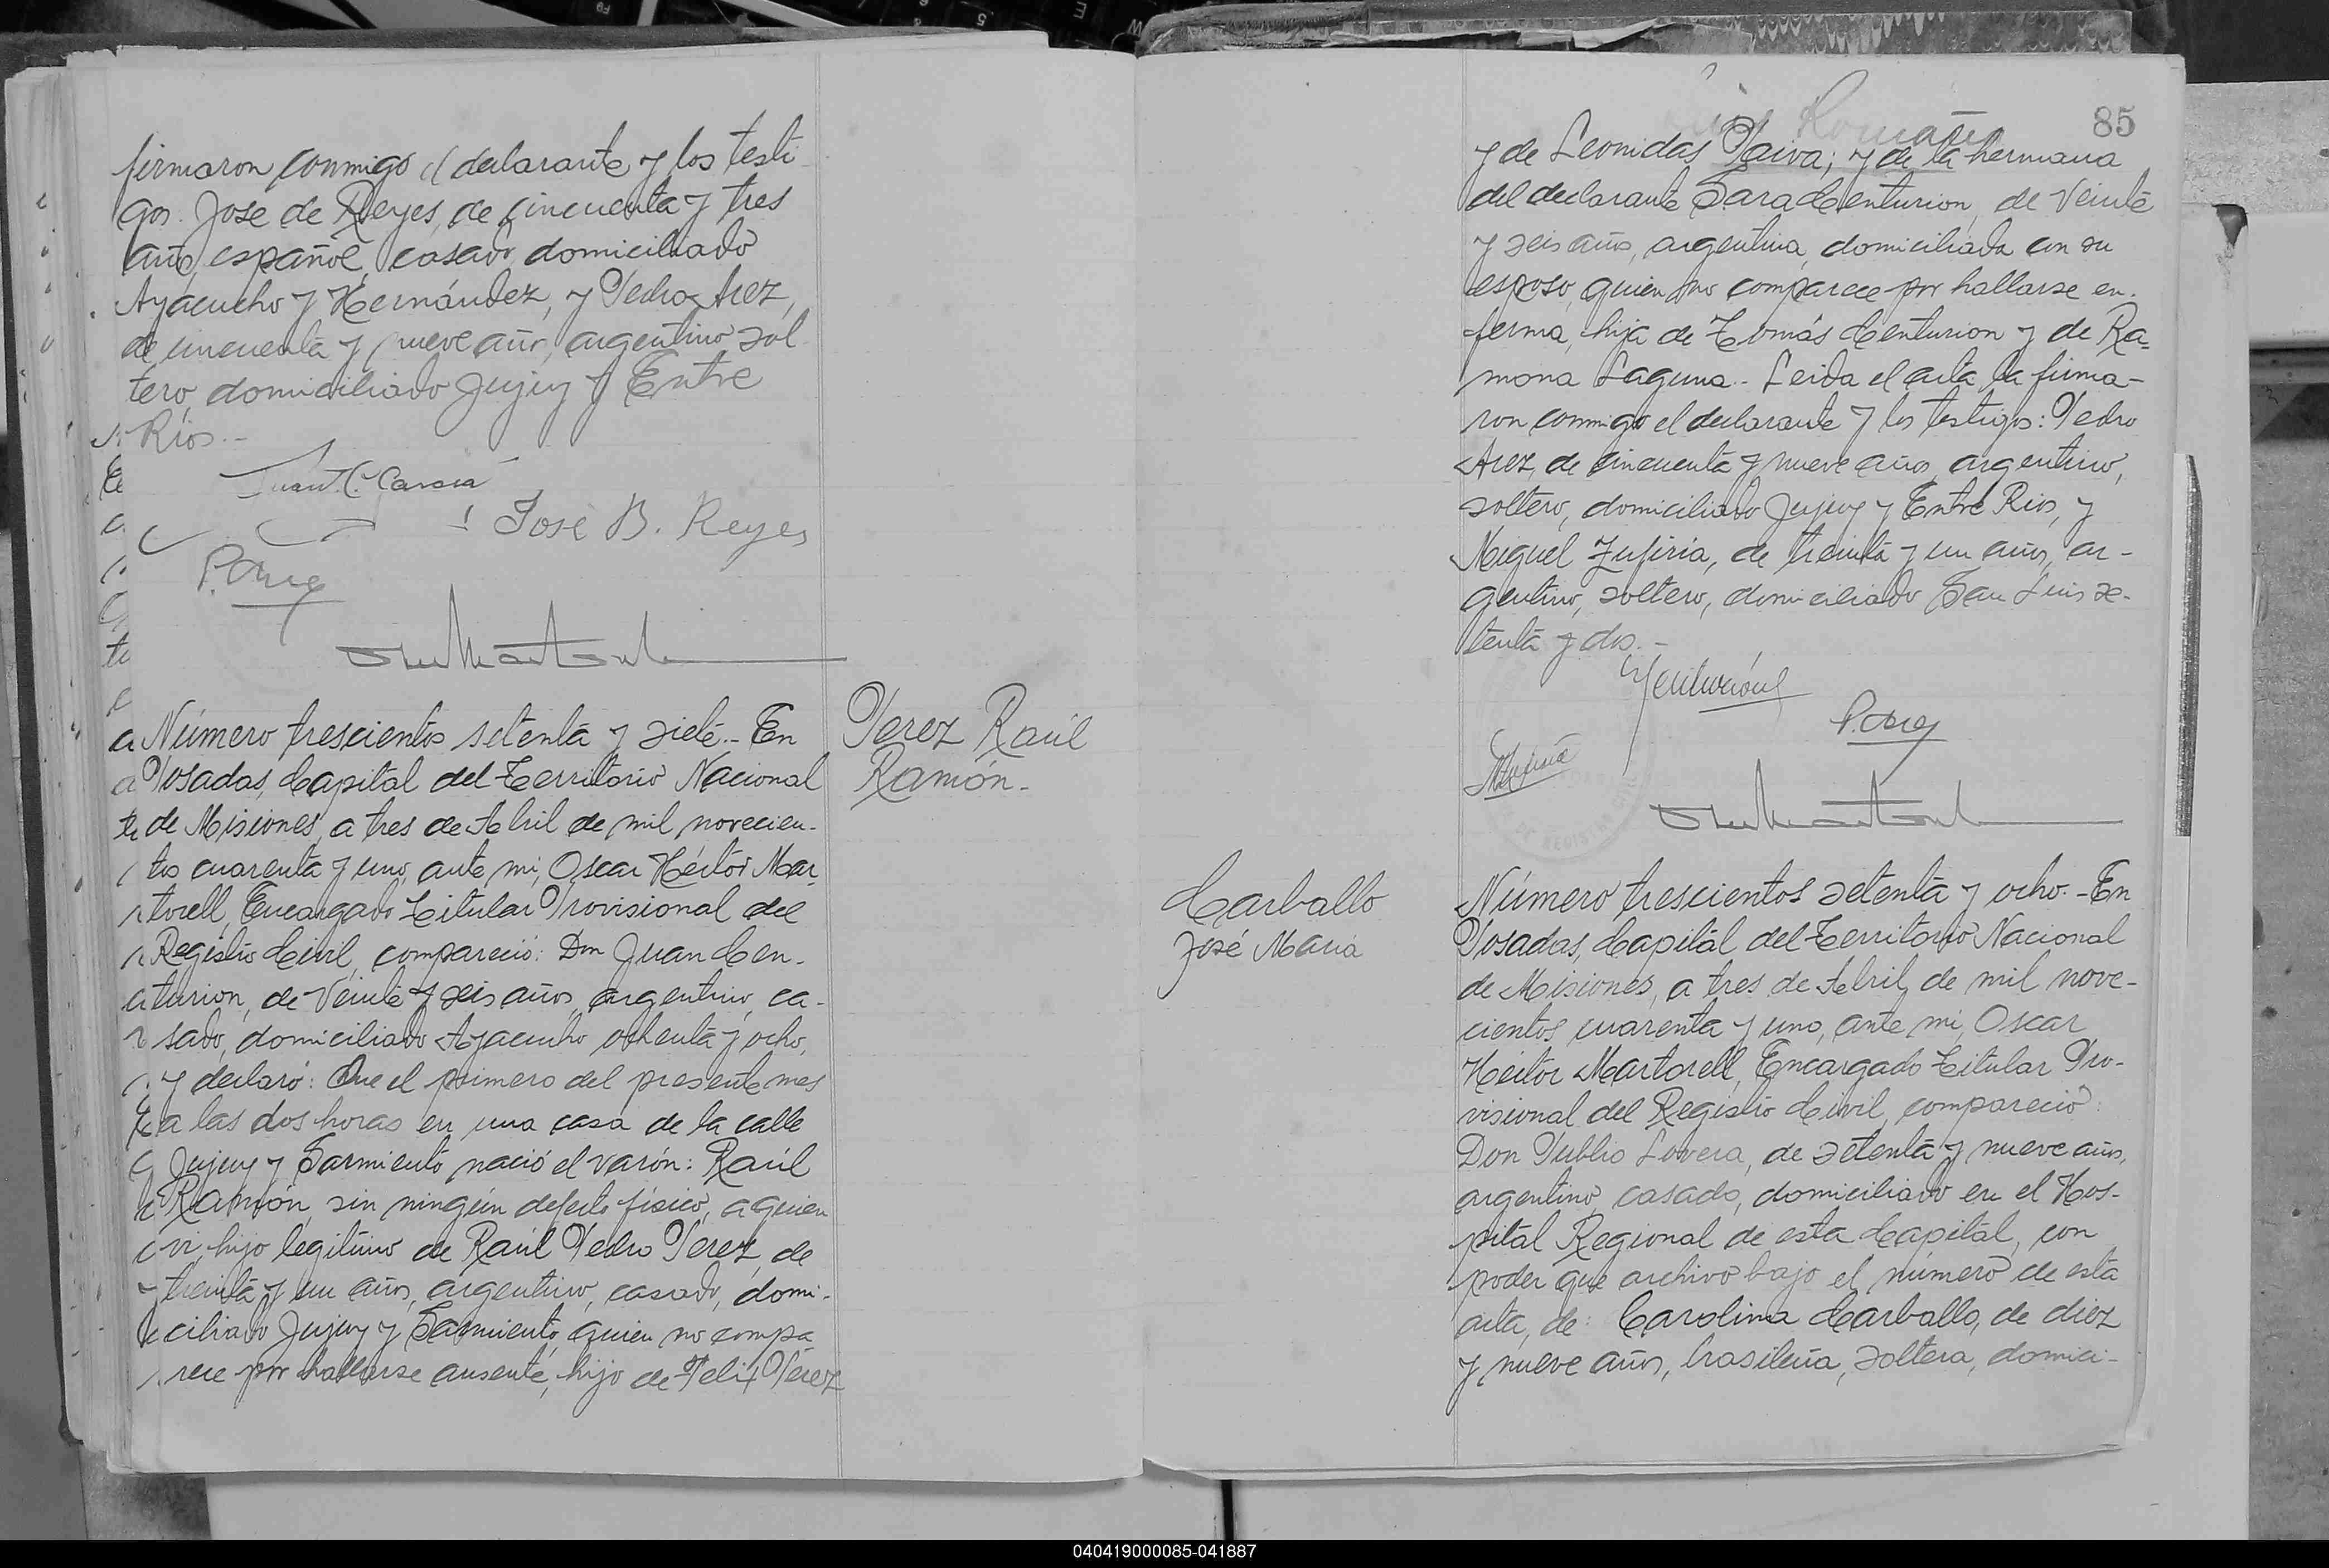 firmaron conmigo el declarante y los testi
gos. Jose de Reyes, de cincuenta y tres
años, español, casado, domiciliado
Ayacucho y Hernández, y Pedro Arez,
de cincuenta y nueve años, argentino sol
tero, domiciliado Jujuy y Entre
Ríos.-
Juan C. García
José B. Reyes
P. Arez
Número trescientos setenta y siete.- En
Posadas, Capital del Territorio Nacional
de Misiones, a tres de Abril de mil novecien-
tos cuarenta y uno, ante mi, Oscar Héctor Mar-
torell, Encargado Titular Provisional del
Registro Civil, compareció: Don Juan Cen-
turion, de veinte y seis años, argentino, ca-
sado, domiciliado Ayacucho ochenta y ocho,
y declaró: Que el primero del presente mes
a las dos horas en una casa de la calle
Jujuy y Sarmiento nació el varón: Raúl
Ramón, sin ningún defecto físico, a quien
vi, hijo legítimo de Raúl Pedro Perez, de
treinta y un años, argentino, casado, domi-
ciliado Jujuy y Sarmiento, quien no compa
rece por hallarse ausente, hijo de Felix Perez
Perez Raúl
Ramón.-
85
y de Leonidas Paiva; y de la hermana
del declarante Sara Centurion, de veinte
y seis años, argentina, domiciliada con su
esposo, quien no comparece por hallarse en-
ferma, hija de Tomás Centurion y de Ra-
mona Laguna.- Leida el acta la firma-
ron conmigo el declarante y los testigos: Pedro
Arez, de cincuenta y nueve años, argentino,
soltero, domiciliado Jujuy y Entre Rios, y
Miguel Zufiria, de treinta y un años, ar-
gentino, soltero, domiciliado San Luis se-
tenta y dos.-
JCenturión
P. Arez
Carballo
José María
Número trescientos setenta y ocho.- En
Posadas, Capital del Territorio Nacional
de Misiones, a tres de Abril de mil nove-
cientos cuarenta y uno, ante mi, Oscar
Héctor Martorell, Encargado Titular Pro-
visional del Registro Civil, compareció:
Don Publio Lovera, de setenta y nueve años,
argentino, casado, domiciliado en el Hos-
pital Regional de esta Capital, con
poder que archivo bajo el número de esta
acta, de: Carolina Carballo, de diez
y nueve años, brasileña, soltera, domici-
040419000085-041887